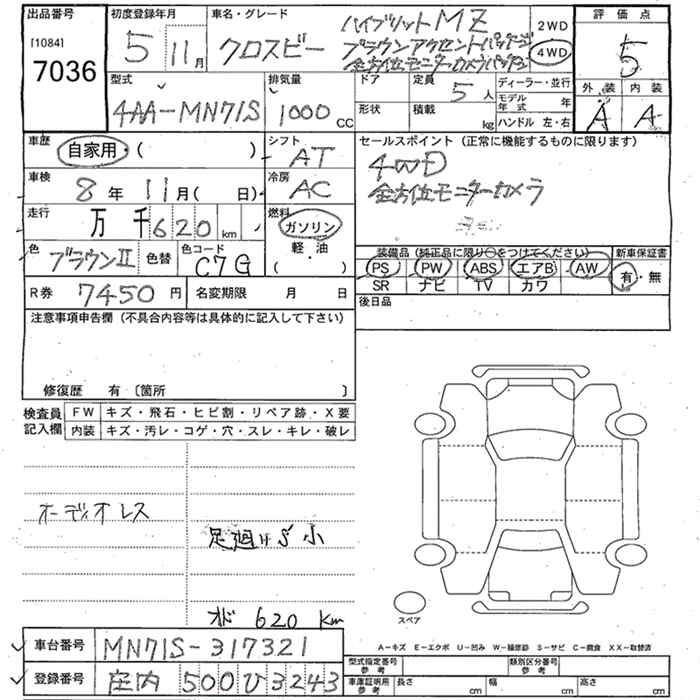 出品番号
[1084]
7036
初度登録年月
5 11月
車名・グレード
クロスビー
ハイブリットMZ
ブラウンアクセントパッケージ
全方位モニターカメラパッケージ
2WD
4WD
評価点
5
外装 内装
A A
型式
4AA-MN71S
排気量
1000 CC
ドア
定員
5人
形状
積載
kg
ディーラー・並行
モデル年式 年
ハンドル 左・右
車歴
自家用・( )
シフト
AT
セールスポイント (正常に機能するものに限ります)
4WD
全方位モニターカメラ
車検
8年 11月( 日)
冷房
AC
走行
万 千 620 km
燃料
ガソリン
軽・油
( )
色
ブラウンII
色替
色コード
C7G
装備品 (純正品に限り○をつけてください)
PS PW ABS エアB AW
SR ナビ TV カワ
新車保証書
有・無
R券 7450 円
名変期限 月 日
後日品
注意事項申告欄 (不具合内容等は具体的に記入して下さい)
修復歴 有 〔箇所 〕
検査員記入欄
FW キズ・飛石・ヒビ割・リペア跡・X要
内装 キズ・汚レ・コゲ・穴・スレ・キレ・破レ
オーディオレス
足廻りS小
オド 620 Km
スペア
A-キズ E-エクボ U-凹み W-補修跡 S-サビ C-腐食 XX-取替済
車台番号 MN71S-317321
登録番号 庄内 500 ひ 3243
型式指定番号 参考
類別区分番号 参考
車庫証明用 参考
長さ cm
幅 cm
高さ cm